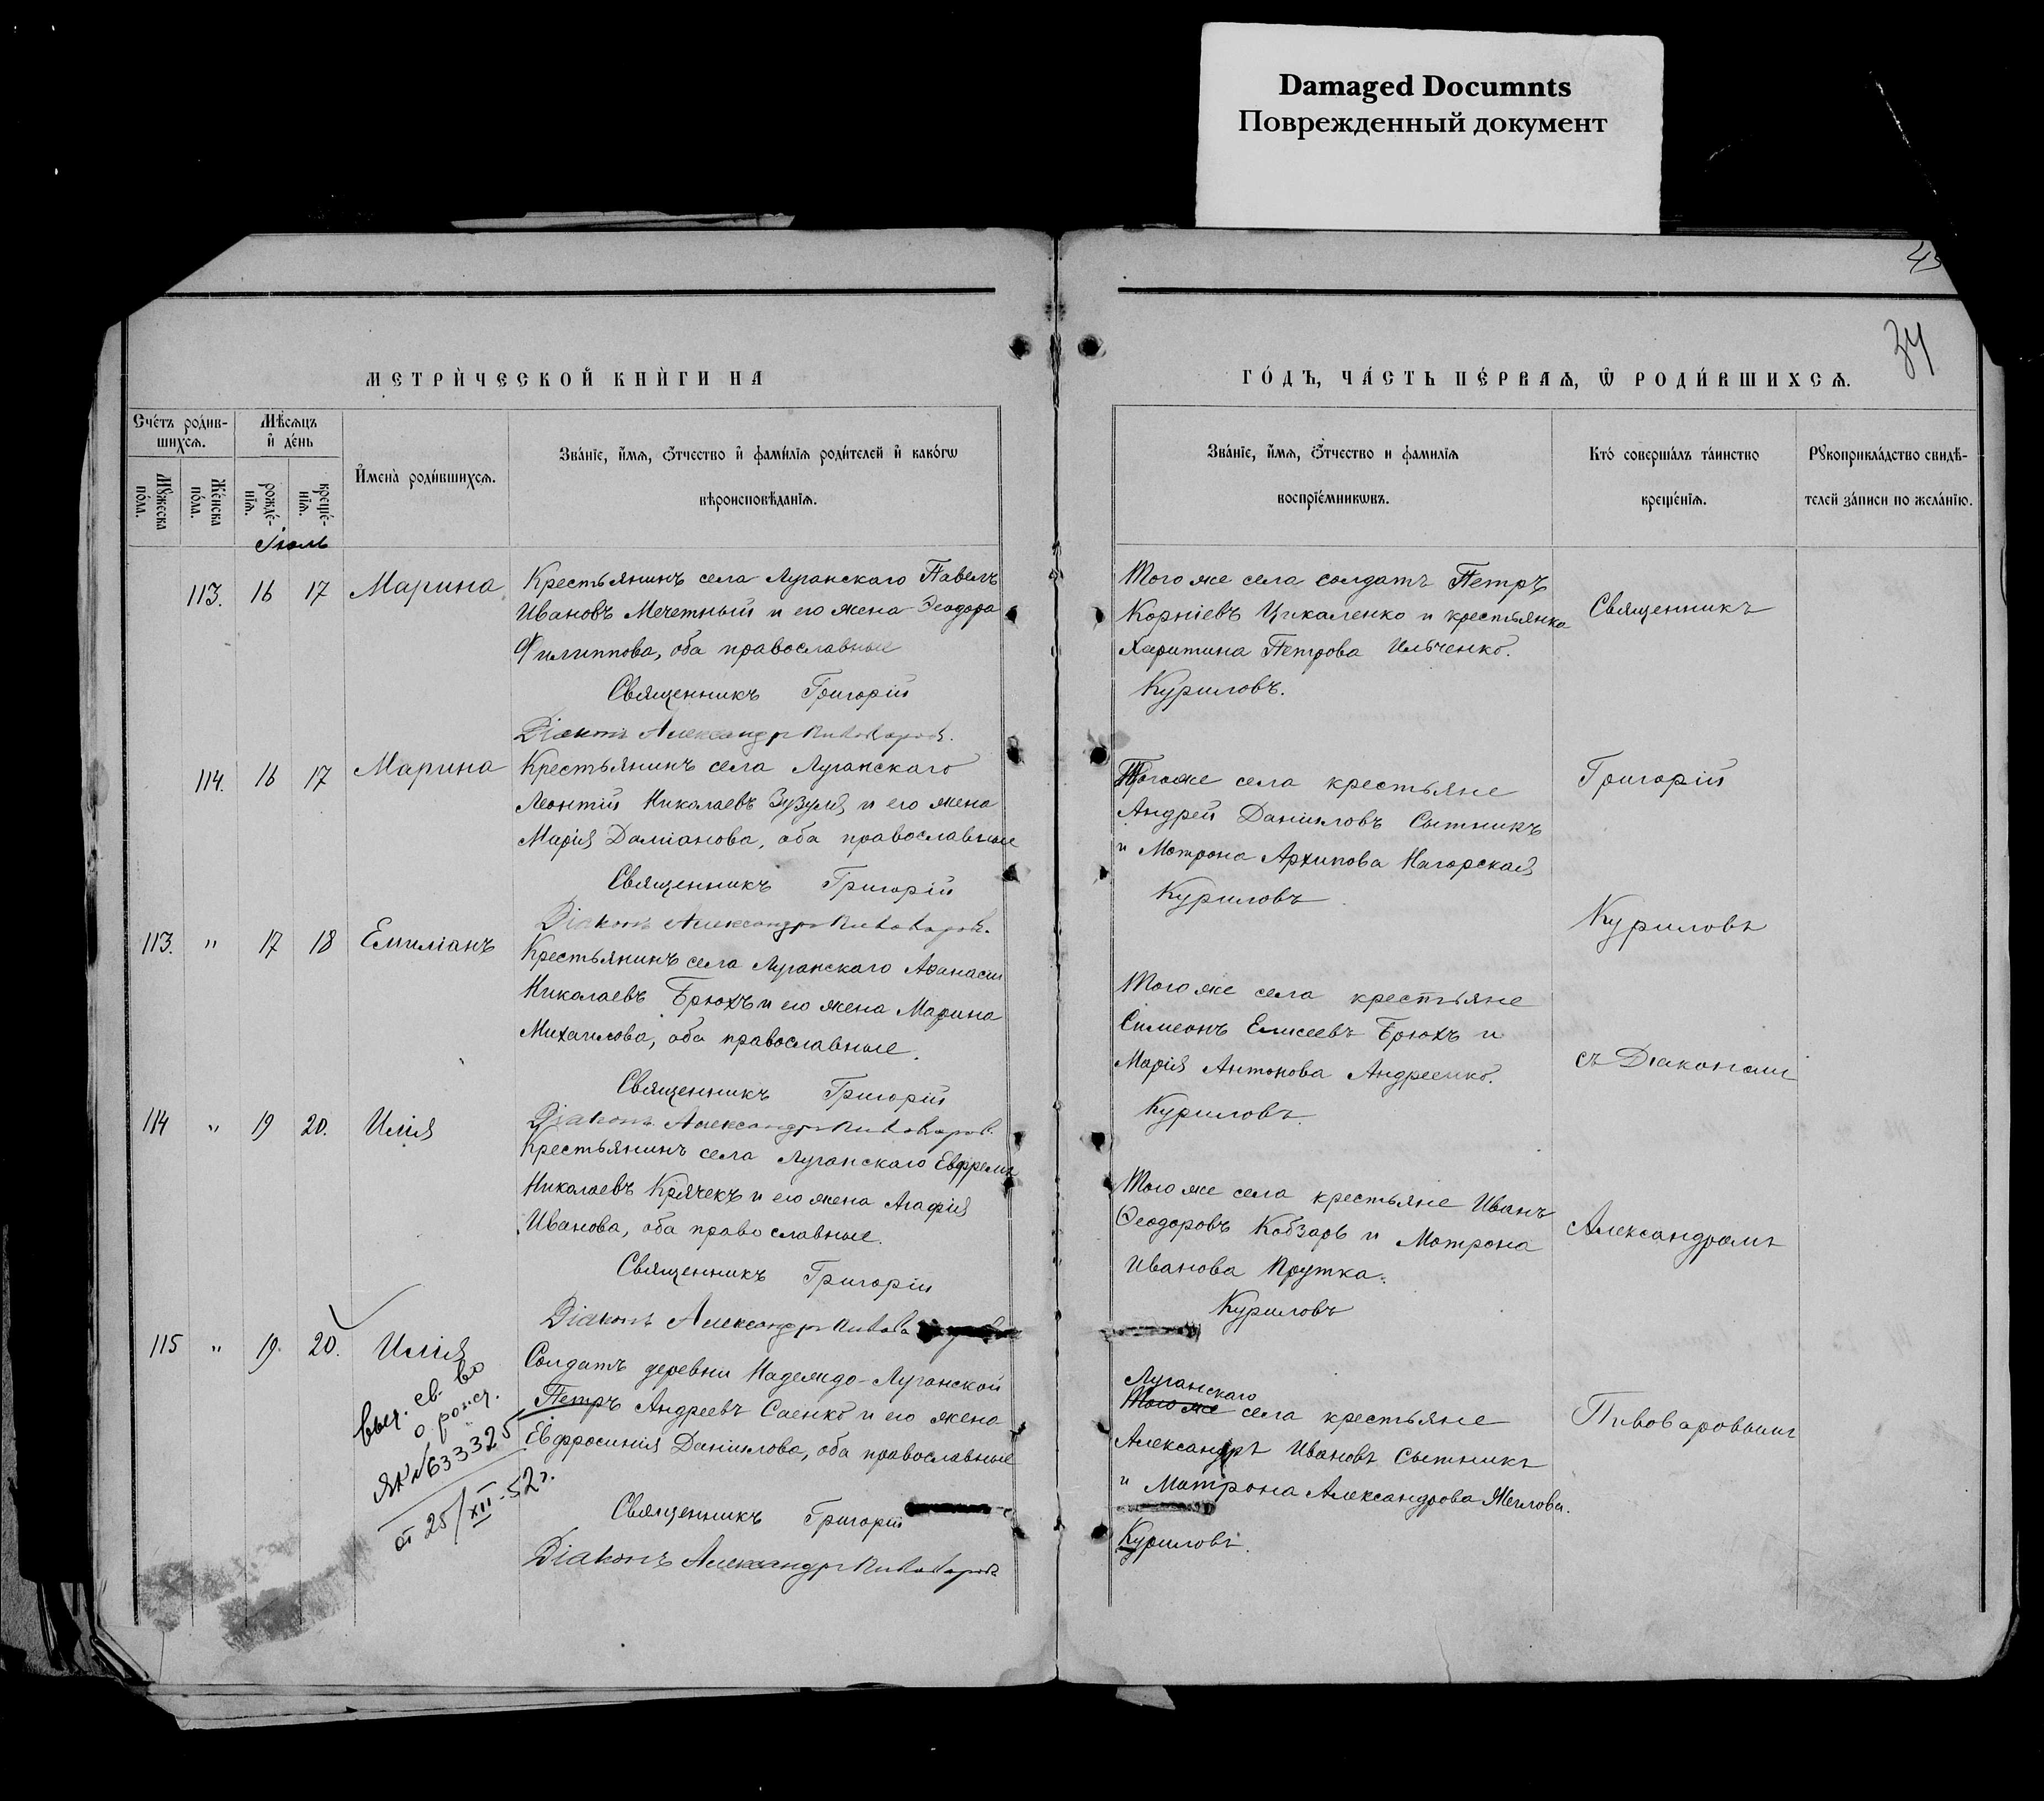 Damaged Documnts
Поврежденный документ
34
МЕТРИ́ЧЕСКОЙ КНИ́ГИ НА
ГО́ДЪ, ЧА́СТЬ ПЕ́РВАѦ, Ѡ҆ РОДИ́ВШИХСѦ.
Счéтъ роди́в-
шихсѧ.
Мѣ́сѧцъ
и҆ дéнь
Мꙋ́жеска
по́ла.
Жéнска
по́ла.
рождé-
нїѧ.
крещé-
нїѧ.
И҆мена̀ роди́вшихсѧ.
Зва́нїе, и҆́мѧ, ѻ҆́тчество и҆ фами́лїѧ роди́телей и҆ како́гѡ
вѣроисповѣ́данїѧ.
Зва́нїе, и҆́мѧ, ѻ҆́тчество и фамилїѧ
воспрїéмникѡвъ.
Кто̀ соверша́лъ та́инство
крещéнїѧ.
Рꙋкоприкла́дство свидѣ́-
телей за́писи по жела́нїю.
Іюль
113. 16 17 Марина
Крестьянинъ села Луганскаго Павелъ
Ивановъ Мечетный и его жена Ѳеодора
Филиппова, оба православные
Священникъ Григорій
Діаконъ Александръ Пивоваровъ.
Того же села солдатъ Петръ
Корніевъ Цикаленко и крестьянка
Харитина Петрова Ильченко.
Куриловъ.
Священникъ
114. 16 17 Марина
Крестьянинъ села Луганскаго
Леонтій Николаевъ Зузуля и его жена
Марія Даміанова, оба православные
Священникъ Григорій
Діаконъ Александръ Пивоваровъ.
Тогоже села крестьяне
Андрей Даніиловъ Сытникъ
и Мотрона Архипова Нагорская
Куриловъ
Григорій
Куриловъ
113. " 17 18 Емиліанъ
Крестьянинъ села Луганскаго Аѳанасій
Николаевъ Брюхъ и его жена Марина
Михаилова, оба православные.
Священникъ Григорій
Діаконъ Александръ Пивоваровъ.
Того же села крестьяне
Симеонъ Елисеевъ Брюхъ и
Марія Антонова Андреенко.
Куриловъ.
съ Діакономъ
114 " 19 20. Илія
Крестьянинъ села Луганскаго Евфремъ
Николаевъ Крячекъ и его жена Агафія
Иванова, оба православные.
Священникъ Григорій
Діаконъ Александръ
Того же села крестьяне Иванъ
Ѳеодоровъ Кобзарь и Мотрона
Иванова Прутка.
Куриловъ
Александромъ
115 " 19. 20. Илія
Солдатъ деревни Надеждо-Луганской
Петръ Андреевъ Саенко и его жена
Евфросинія Даніилова, оба православные
Священникъ Григорій
Діаконъ Александръ Пивоваровъ
выд. св. во
о рожд.
ЯК №633325
от 25/XII-52 г.
Луганскаго
Того же села крестьяне
Александръ Ивановъ Сытникъ
и Мотрона Александрова
Куриловъ.
Пивоваровымъ